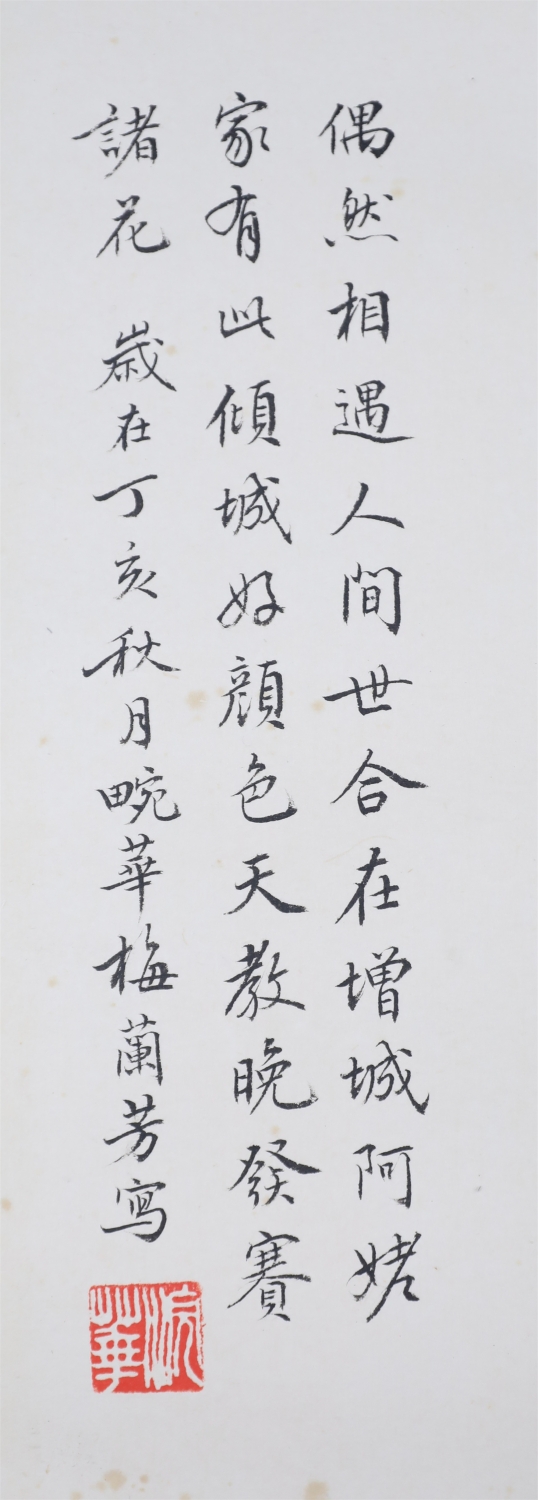 偶然相遇人間世合在增城阿姥
家有此傾城好顏色天教晚發賽
諸花　歲在丁亥秋月畹華梅蘭芳寫
浣華